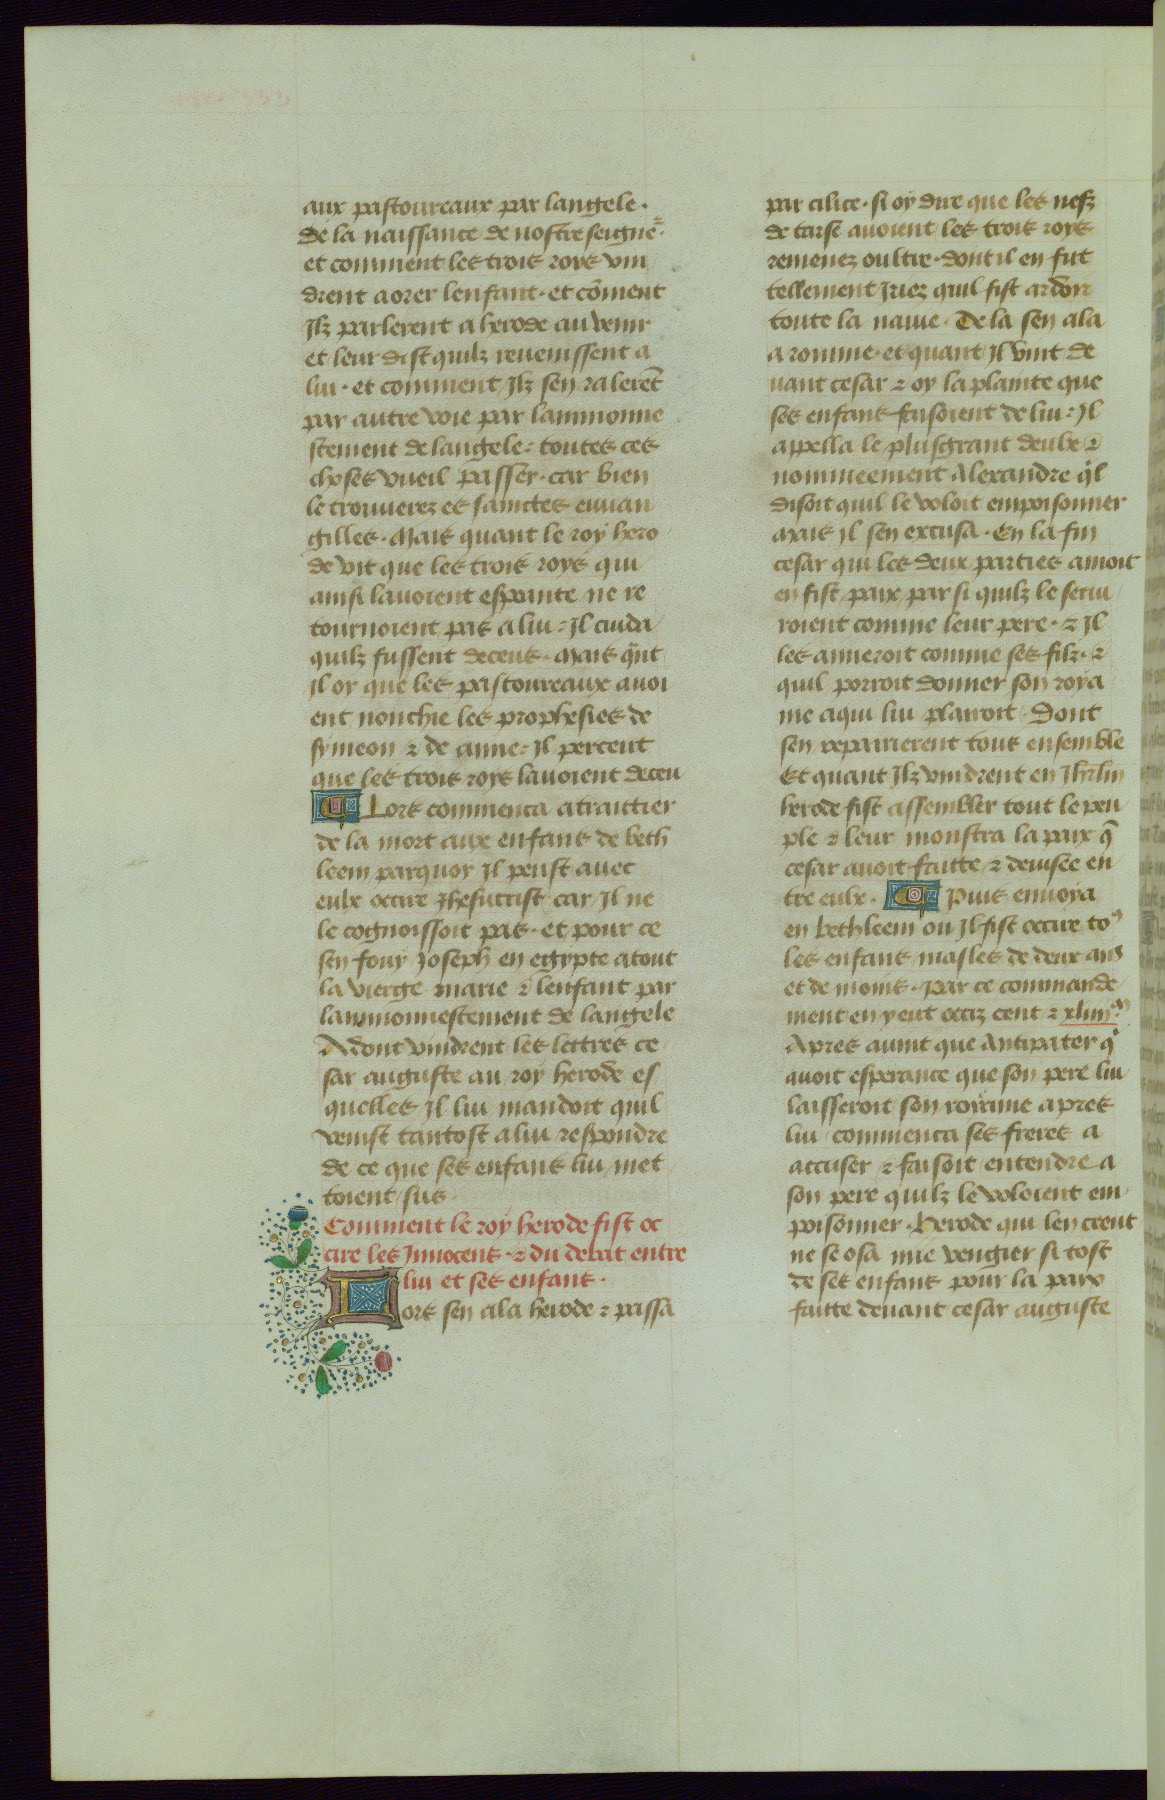 aux pastoureaux par langele.
de la naissance de nostre seigne~.
et comment les trois roys vin
drent aorer lenfant. et cõment
Ilz parlerent a herode au venir
et leur dist quilz reuenissent a
lui. et comment Ilz sen ralerẽt
par autre voie par lammonne
stement de langele: toutes ces
choses vueil passer. car bien
le trouuerez es sainctes euuan
gilles. Mais quant le roy hero
de vit que les trois roys qui
ainsi lauoient espante ne re
tournoient pas a lui: Il cuida
quilz fussent deceus. Mais qu̾nt
Il oy que les pastoureaux auoi
ent nonchie les prophesies de
symeon ⁊ de anne: Il percent
que les trois roys lauoient deceu
Lors commenca a traittier
de la mort aux enfans de beth
leem parquoy Il peust auec
eulx occire Jhesucrist car Il ne
le cognoissoit pas. et pour ce
sen fouy Joseph en egypte atout
la vierge marie ⁊ lenfant par
lammonnestement de langele
Adont vindrent les lettres ce
sar auguste au roy herode es
quelles Il lui mandoit quil
venist tantost a lui respondre
de ce que ses enfans lui met
toient sus.
Comment le roy herode fist oc
cire les Innocens. ⁊ du debat entre
lui et ses enfans.
Lors sen ala herode ⁊ passa
par cilice. si oy dire que les nefz
de tarse auoient les trois roys
remenez oultre. dont il en fut
tellement Iriez quil fist ardoir
toute la nauie. De la sen ala
a romme. et quant Il vint de
uant cesar ⁊ oy la plainte que
ses enfans faisoient de lui: Il
appella le plus grant deulx ⁊
nommeement Alexandre q̾l
disoit quil le voloit empoisonner
Mais Il sen excusa. En la fin
cesar qui les deux parties amoit
en fist paix par si quilz le serui
roient comme leur pere. ⁊ Il
les ameroit comme ses filz. ⁊
quil porroit donner son roya
me a qui lui plairoit. Dont
sen repairierent tous ensemble
Et quant Ilz vindrent en Ihrl̃m
herode fist assembler tout le peu
ple ⁊ leur monstra la paix q̃
cesar auoit faitte ⁊ deuisee en
tre eulx. Puis enuoya
en bethleem ou Il fist occire to⁹
les enfans masles de deux ans
et de moins. Par ce commande
ment en y eut occiz cent ⁊ xliiii.m
Apres auint que Antipater q̾
auoit esperance que son pere lui
laisseroit son royaume apres
lui commenca ses freres a
accuser ⁊ faisoit entendre a
son pere quilz le voloient em
poisonner. Herode qui len creut
ne se osa mie vengier si tost
de ses enfans pour la paix
faitte deuant cesar auguste